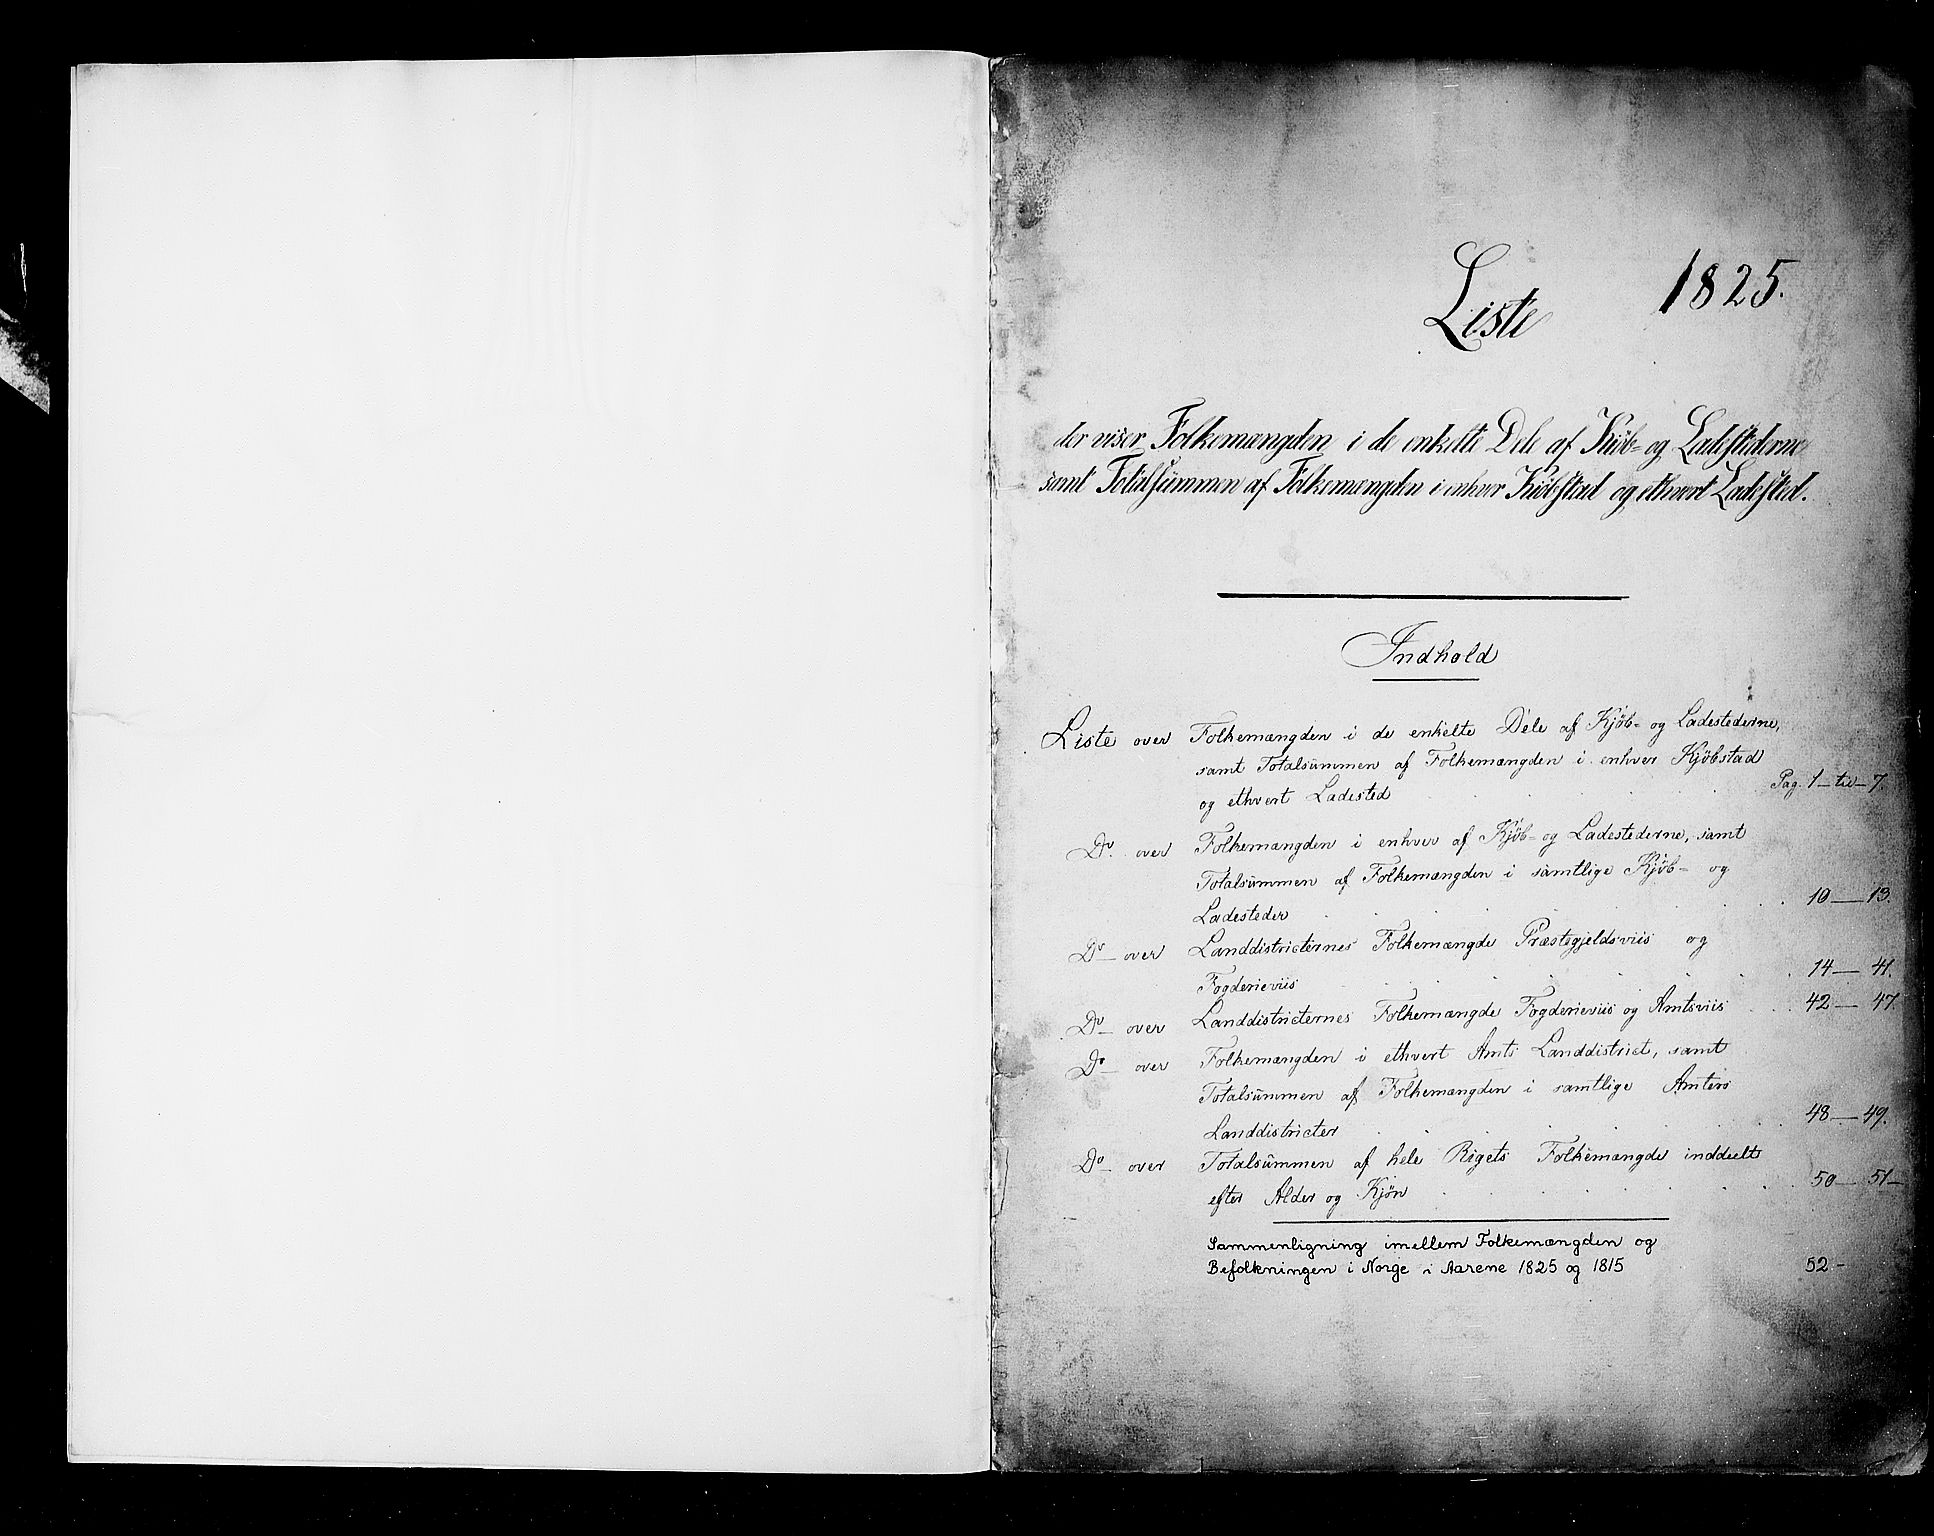 1825.
Liste
der viser Folkemængden i de enkelte Dele af Kiøb- og Ladestederne
samt Totalsummen af Folkemængden i enhver Kiøbstad og ethvert Ladested.
Indhold
Liste over Folkemængden i de enkelte Dele af Kjøb- og Ladestederne,
samt Totalsummen af Folkemængden i enhver Kjøbstad
og ethvert Ladested . . . . Pag. 1 – til – 7.
Do. over Folkemængden i enhver af Kjøb- og Ladestederne, samt
Totalsummen af Folkemængden i samtlige Kjøb- og
Ladesteder . . . . . . 10 — 13.
Do over Landdistricternes Folkemængde Præstegjeldsviis og
Fogderieviis . . . . . . 14 — 41.
Do over Landdistricternes Folkemængde Fogderieviis og Amtsviis . . . 42 — 47.
Do over Folkemængden i ethvert Amts Landdistrict, samt
Totalsummen af Folkemængden i samtlige Amters
Landdistricter . . . . . . 48 — 49.
Do over Totalsummen af hele Rigets Folkemængde inddeelt
efter Alder og Kjøn . . . . . . 50 — 51 –
Sammenligning imellem Folkemængden og
Befolkningen i Norge i Aarene 1825 og 1815 52 –